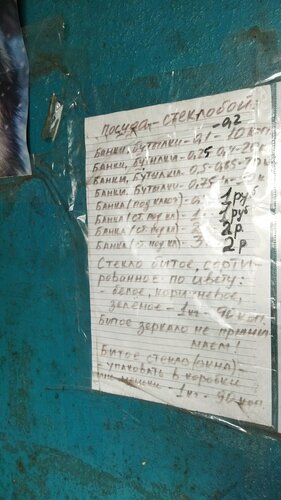 Посуда - стеклобой:
Банки, бутылки - 0,1 - 0,2 - 10 коп
Банки, бутылки - 0,25 0,4 - 20 к
Банки, бутылки - 0,5 - 0,65 - 70 к
Банки, бутылки - 0,75
Банка (под ключ) - 0, 1 руб
Банка (от. под кл) - 1 - 1 руб
Банка (от. под кл) - 2 2 р.
Банка (от. под кл) - 3 2 р
Стекло битое, сорти-
рованное по цвету:
белое, коричневое,
зелёное - 1 кг - 90 коп.
Битое зеркало не прини-
маем!
Битое стекло (окна) -
- упаковать в коробки
или мешки - 1 кг - 90 коп